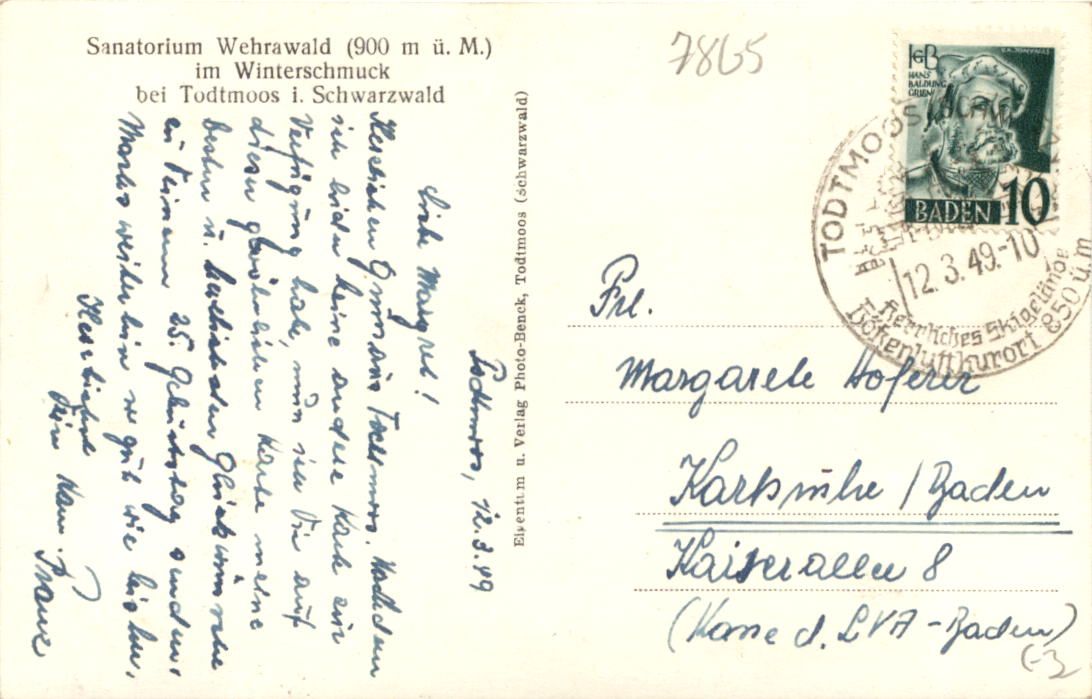 Sanatorium Wehrawald (900 m ü. M.)
im Winterschmuck
bei Todtmoos i. Schwarzwald
7865
HGB
HANS
BALDUNG
GRIEN
BADEN 10
TODTMOOS
12.3.49.-10
Herrliches Skigelände
Höhenluftkurort 850 ü.m
Eigentum u. Verlag Photo-Benck, Todtmoos (Schwarzwald)
Todtmoos, 12.3.49
Liebe Margret!
Herzlichen Gruß aus Todtmoos. Nachdem
ich leider keine andere Karte zur
Verfügung habe, muß ich Dir auf
dieser gewöhnlichen Karte meine
besten u. herzlichsten Glückwünsche
zu Deinem 25. Geburtstag senden.
Mach's weiterhin so gut wie bisher.
Herzlichst
Dein
Franz
Frl.
Margarete Hoferer
Karlsruhe / Baden
Kaiserallee 8
(Kasse d. LVA - Baden)
(-3